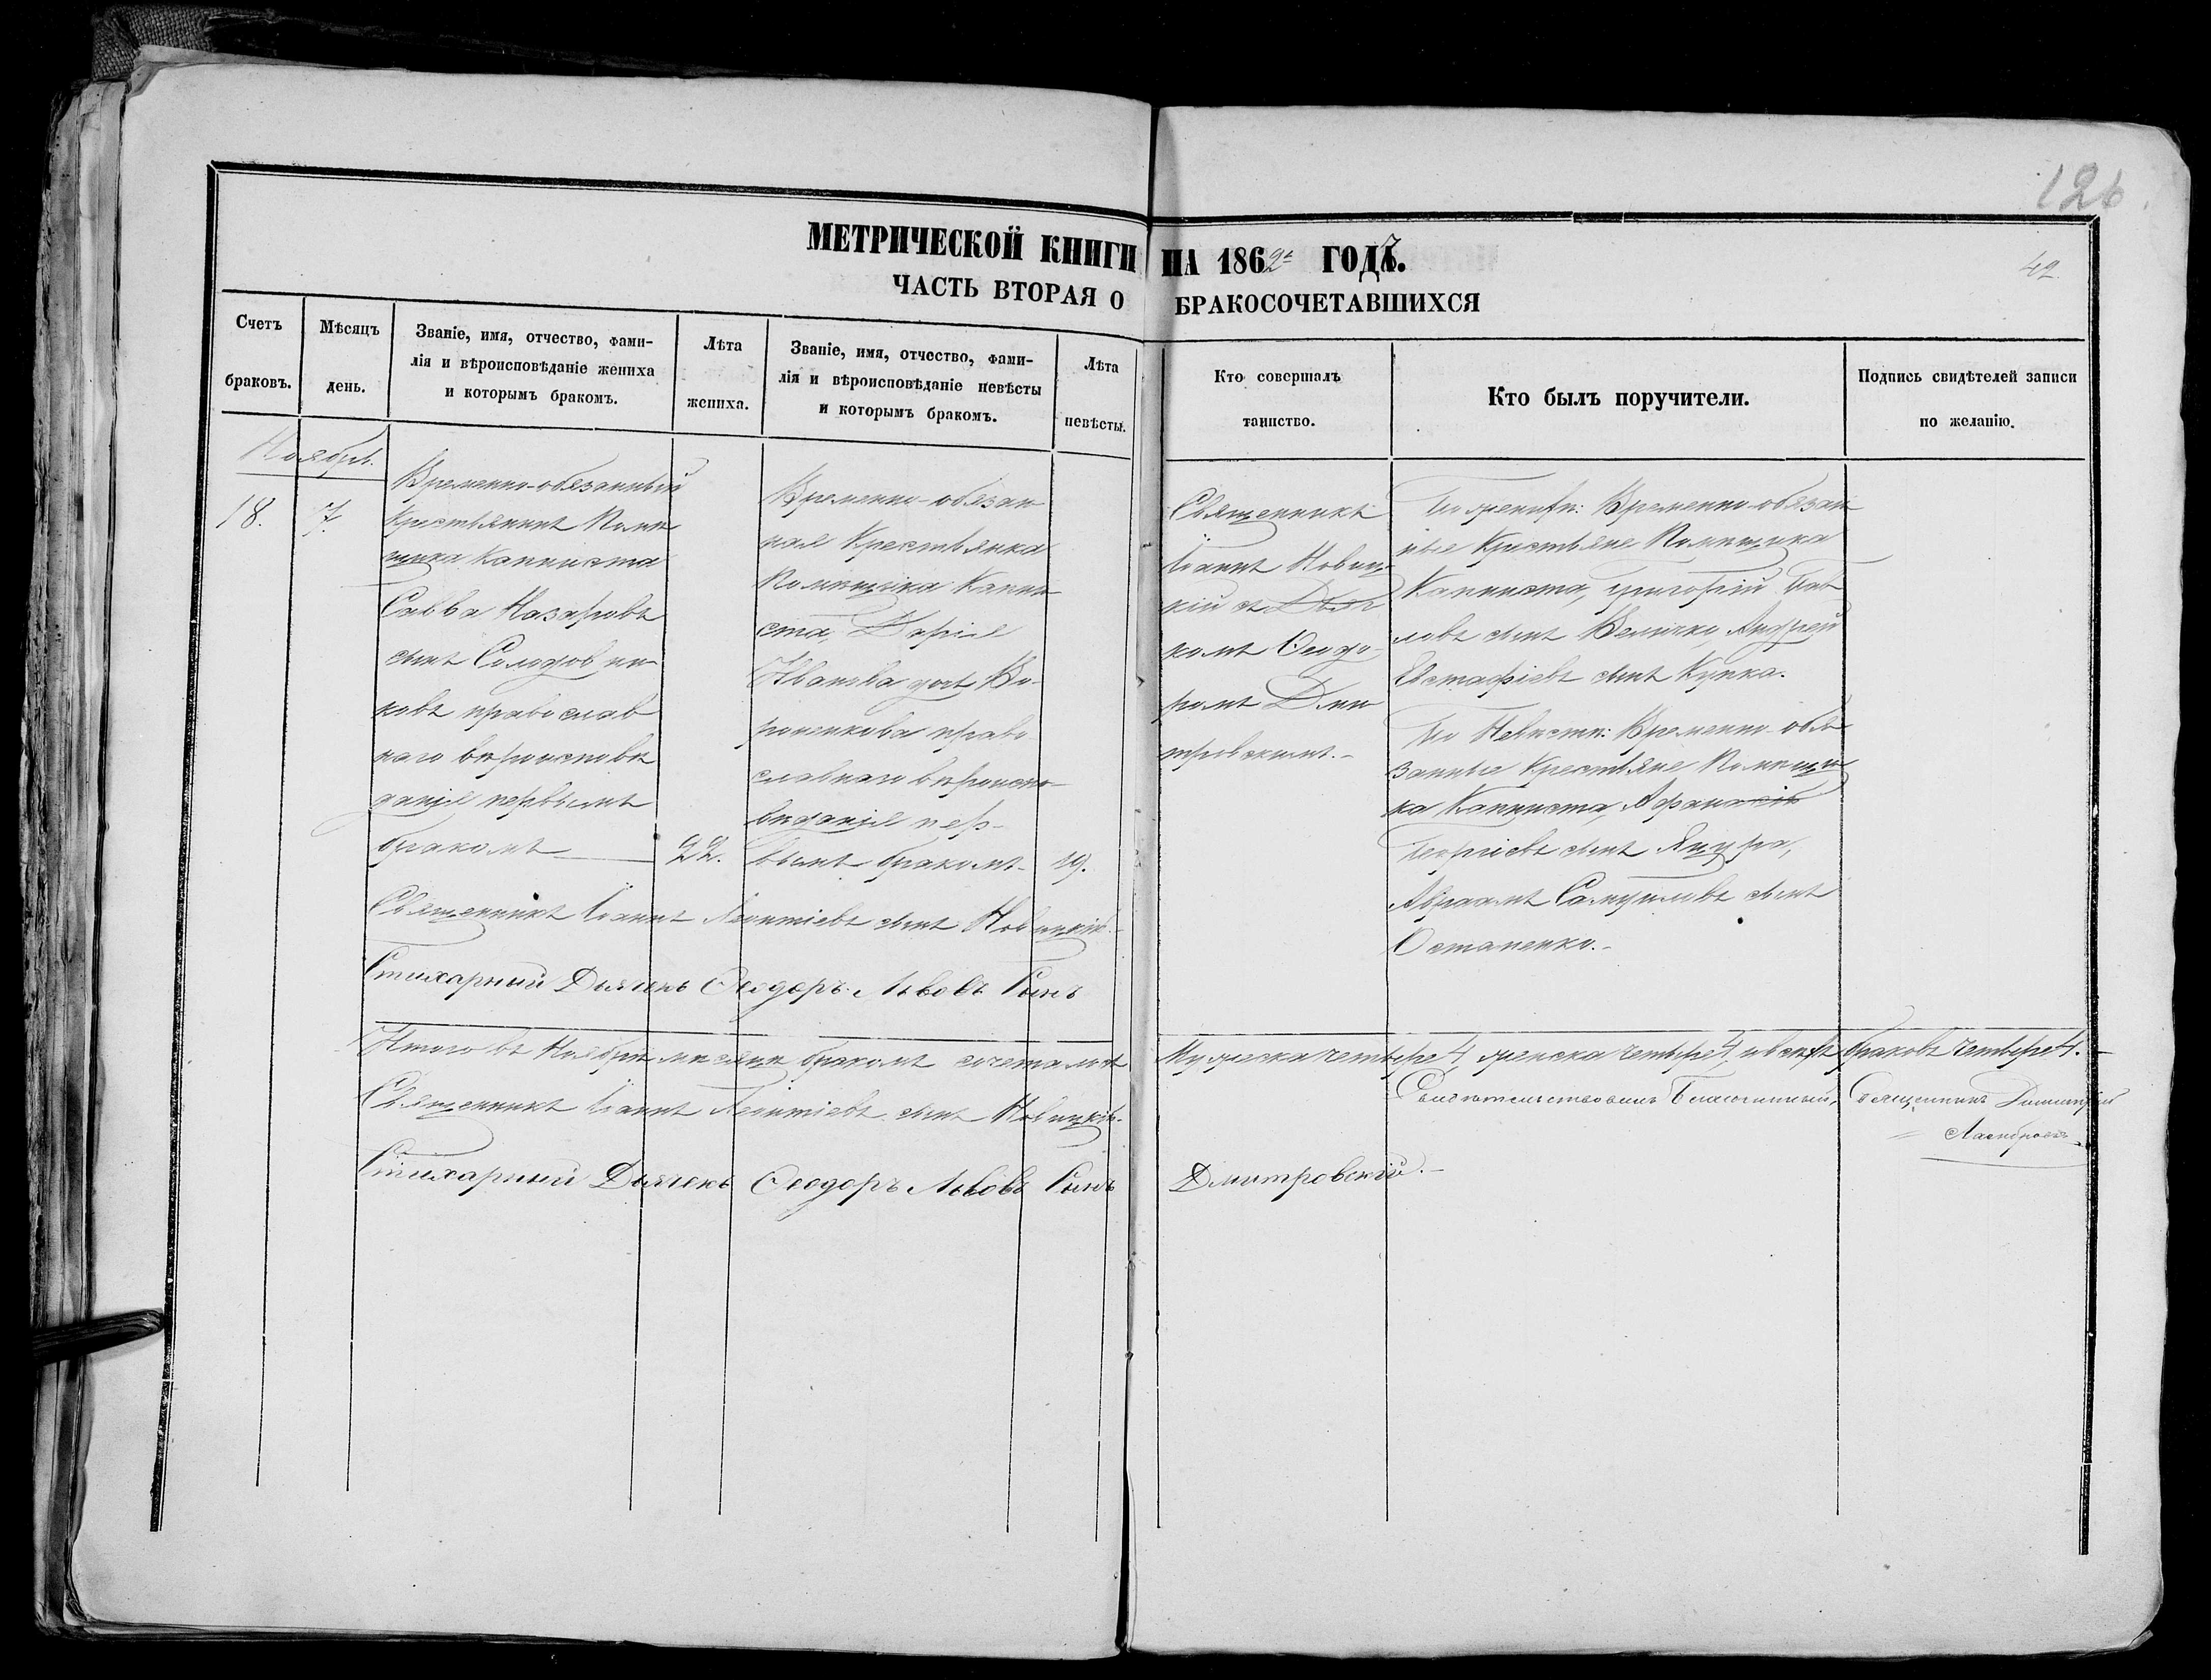 126
42
МЕТРИЧЕСКОЙ КНИГИ НА 1862а ГОДА.
ЧАСТЬ ВТОРАЯ О БРАКОСОЧЕТАВШИХСЯ
Счетъ
браковъ.
Мѣсяцъ
день.
Званіе, имя, отчество, фами-
лія и вѣроисповѣданіе жениха
и которымъ бракомъ.
Лѣта
жениха.
Званіе, имя, отчество, фами-
лія и вѣроисповѣданіе невѣсты
и которымъ бракомъ.
Лѣта
невѣсты.
Кто совершалъ
таинство.
Кто былъ поручители.
Подпись свидѣтелей записи
по желанію.
Ноябрь.
18.
7.
Временно-обязанный
Крестьянинъ Помѣ
щика Капниста
Савва Назаровъ
сынъ Солодовни
ковъ православ
наго вѣроисповѣ
данія первымъ
бракомъ
22.
Временно-обязан
ная Крестьянка
Помѣщика Капни
ста, Дарія
Иванова дочь Во-
роненкова право
славнаго вѣроиспо-
вѣданія пер-
вымъ бракомъ.
19.
Священникъ
Іоаннъ Новиц-
кій съ Дьяч
комъ Ѳеодо-
ромъ Дми
тровскимъ.
По женихѣ: Временно-обязан
ные Крестьяне Помѣщика
Капниста, Григорій Пав
ловъ сынъ Величко, Андрей
Евстафіевъ сынъ Купка.
По Невѣстѣ: Временно-обя
занные Крестьяне Помѣщи
ка Капниста, Афанасій
Георгіевъ сынъ Яцура,
Авраамъ Самуиловъ сынъ
Остапенко.
Священникъ Іоаннъ Леонтіевъ сынъ Новицкій.
Стихарный Дьячекъ Ѳеодоръ Львовъ Сынъ
Итого въ Ноябрѣ мѣсяцѣ бракомъ сочеталось Мужеска четыре 4, женска четыре 4, а всѣхъ браковъ четыре 4.
Священникъ Іоаннъ Леонтіевъ сынъ Новицкій.
Свидѣтельствовалъ Благочинный, Священникъ Димитрій
Стихарный Дьячекъ Ѳеодоръ Львовъ Сынъ Дмитровскій.